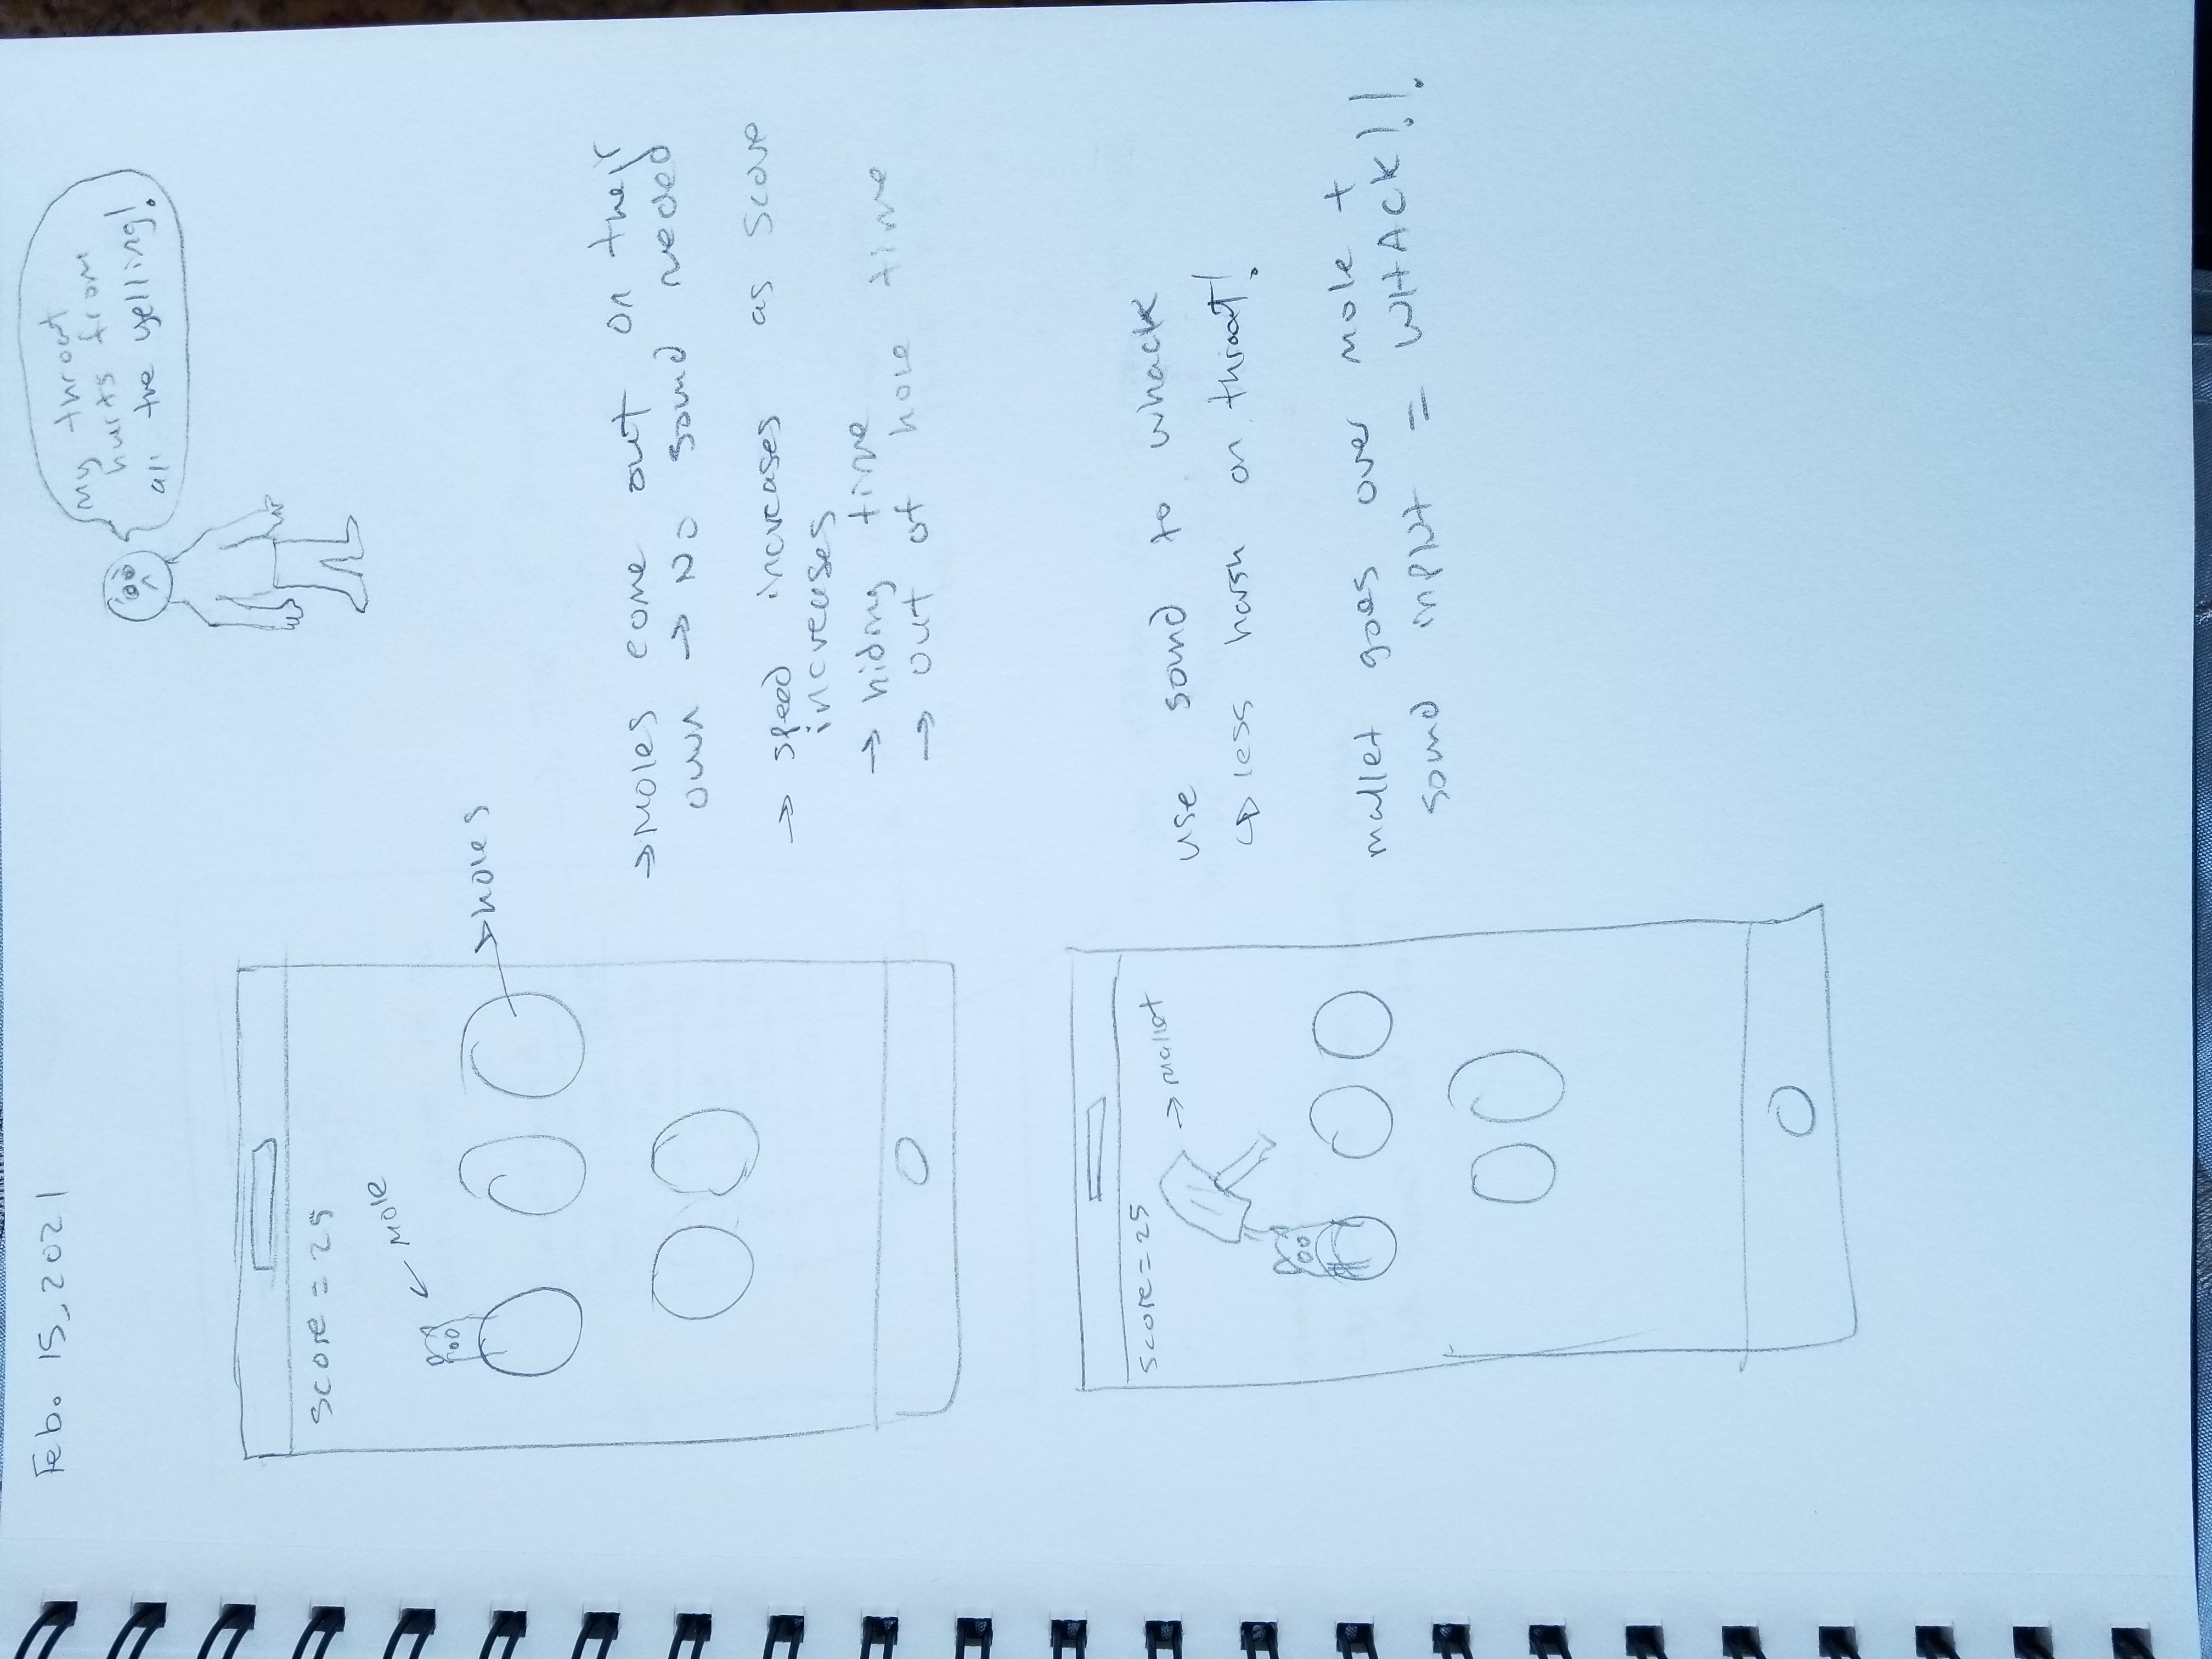 Feb. 15, 2021
My throat
hurts from
all the yelling!
Score = 25
← Mole
→ holes
→ Moles come out on their
own → No sound needed
→ speed increases as score
increases
→ hiding time
→ out of hole time
Score = 25
→ mallet
use sound to whack
↳ less harsh on throat!
mallet goes over mole +
sound input = WHACK!!